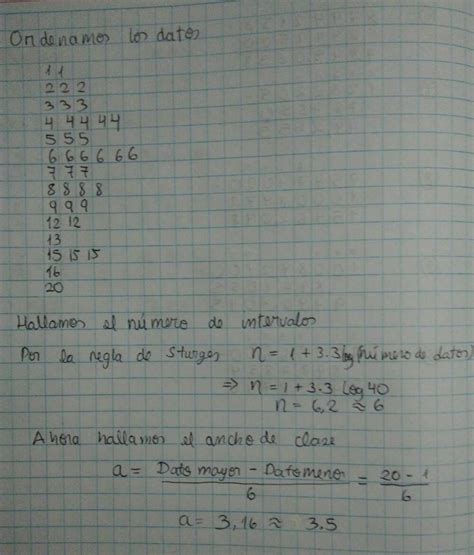 Ordenamos los datos
1 1
2 2 2
3 3 3
4 4 4 4 4
5 5 5
6 6 6 6 6 6
7 7 7
8 8 8 8
9 9 9
12 12
13
15 15 15
16
20
Hallamos el número de intervalos
Por la regla de Sturges n = 1 + 3.3 log (número de datos)
⇒ n = 1 + 3.3 log 40
n = 6,2 ≈ 6
Ahora hallamos el ancho de clase
a = (Dato mayor - Dato menor) / 6 = (20 - 1) / 6
a = 3,16 ≈ 3.5